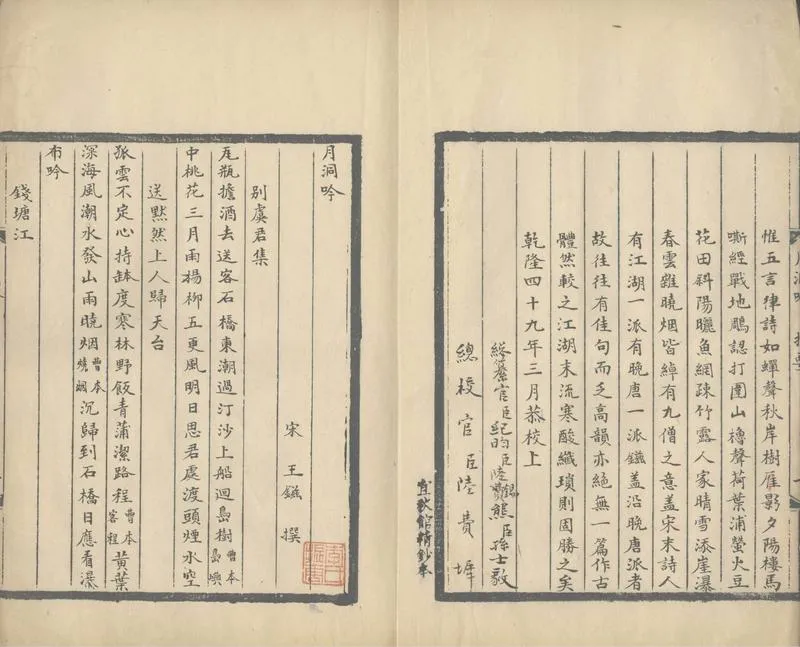 惟五言律詩如蟬聲秋岸樹雁影夕陽樓馬
嘶經戰地鵰認打圍山櫓聲荷葉浦螢火豆
花田斜陽曬魚網疎竹露人家晴雪添崖瀑
春雲雜曉烟皆綽有九僧之意蓋宋末詩人
有江湖一派有晚唐一派鎡蓋沿晚唐派者
故往往有佳句而乏高韻亦絕無一篇作古
體然較之江湖末流寒酸纖瑣則固勝之矣
乾隆四十九年三月恭校上
總纂官臣紀昀臣陸錫熊臣孫士毅
總校官臣陸費墀
宜秋館精鈔本
月洞吟
宋 王鎡 撰
別虞君集
瓦瓶擔酒去送客石橋東潮過汀沙上船迴島樹曹本島嶼
中桃花三月雨楊柳五更風明日思君處渡頭煙水空
送默然上人歸天台
孤雲不定心持缽度寒林野飯青蒲潔路程曹本客程黃葉
深海風潮水發山雨曉烟曹本燒烟沉歸到石橋日應看瀑
布吟
錢塘江